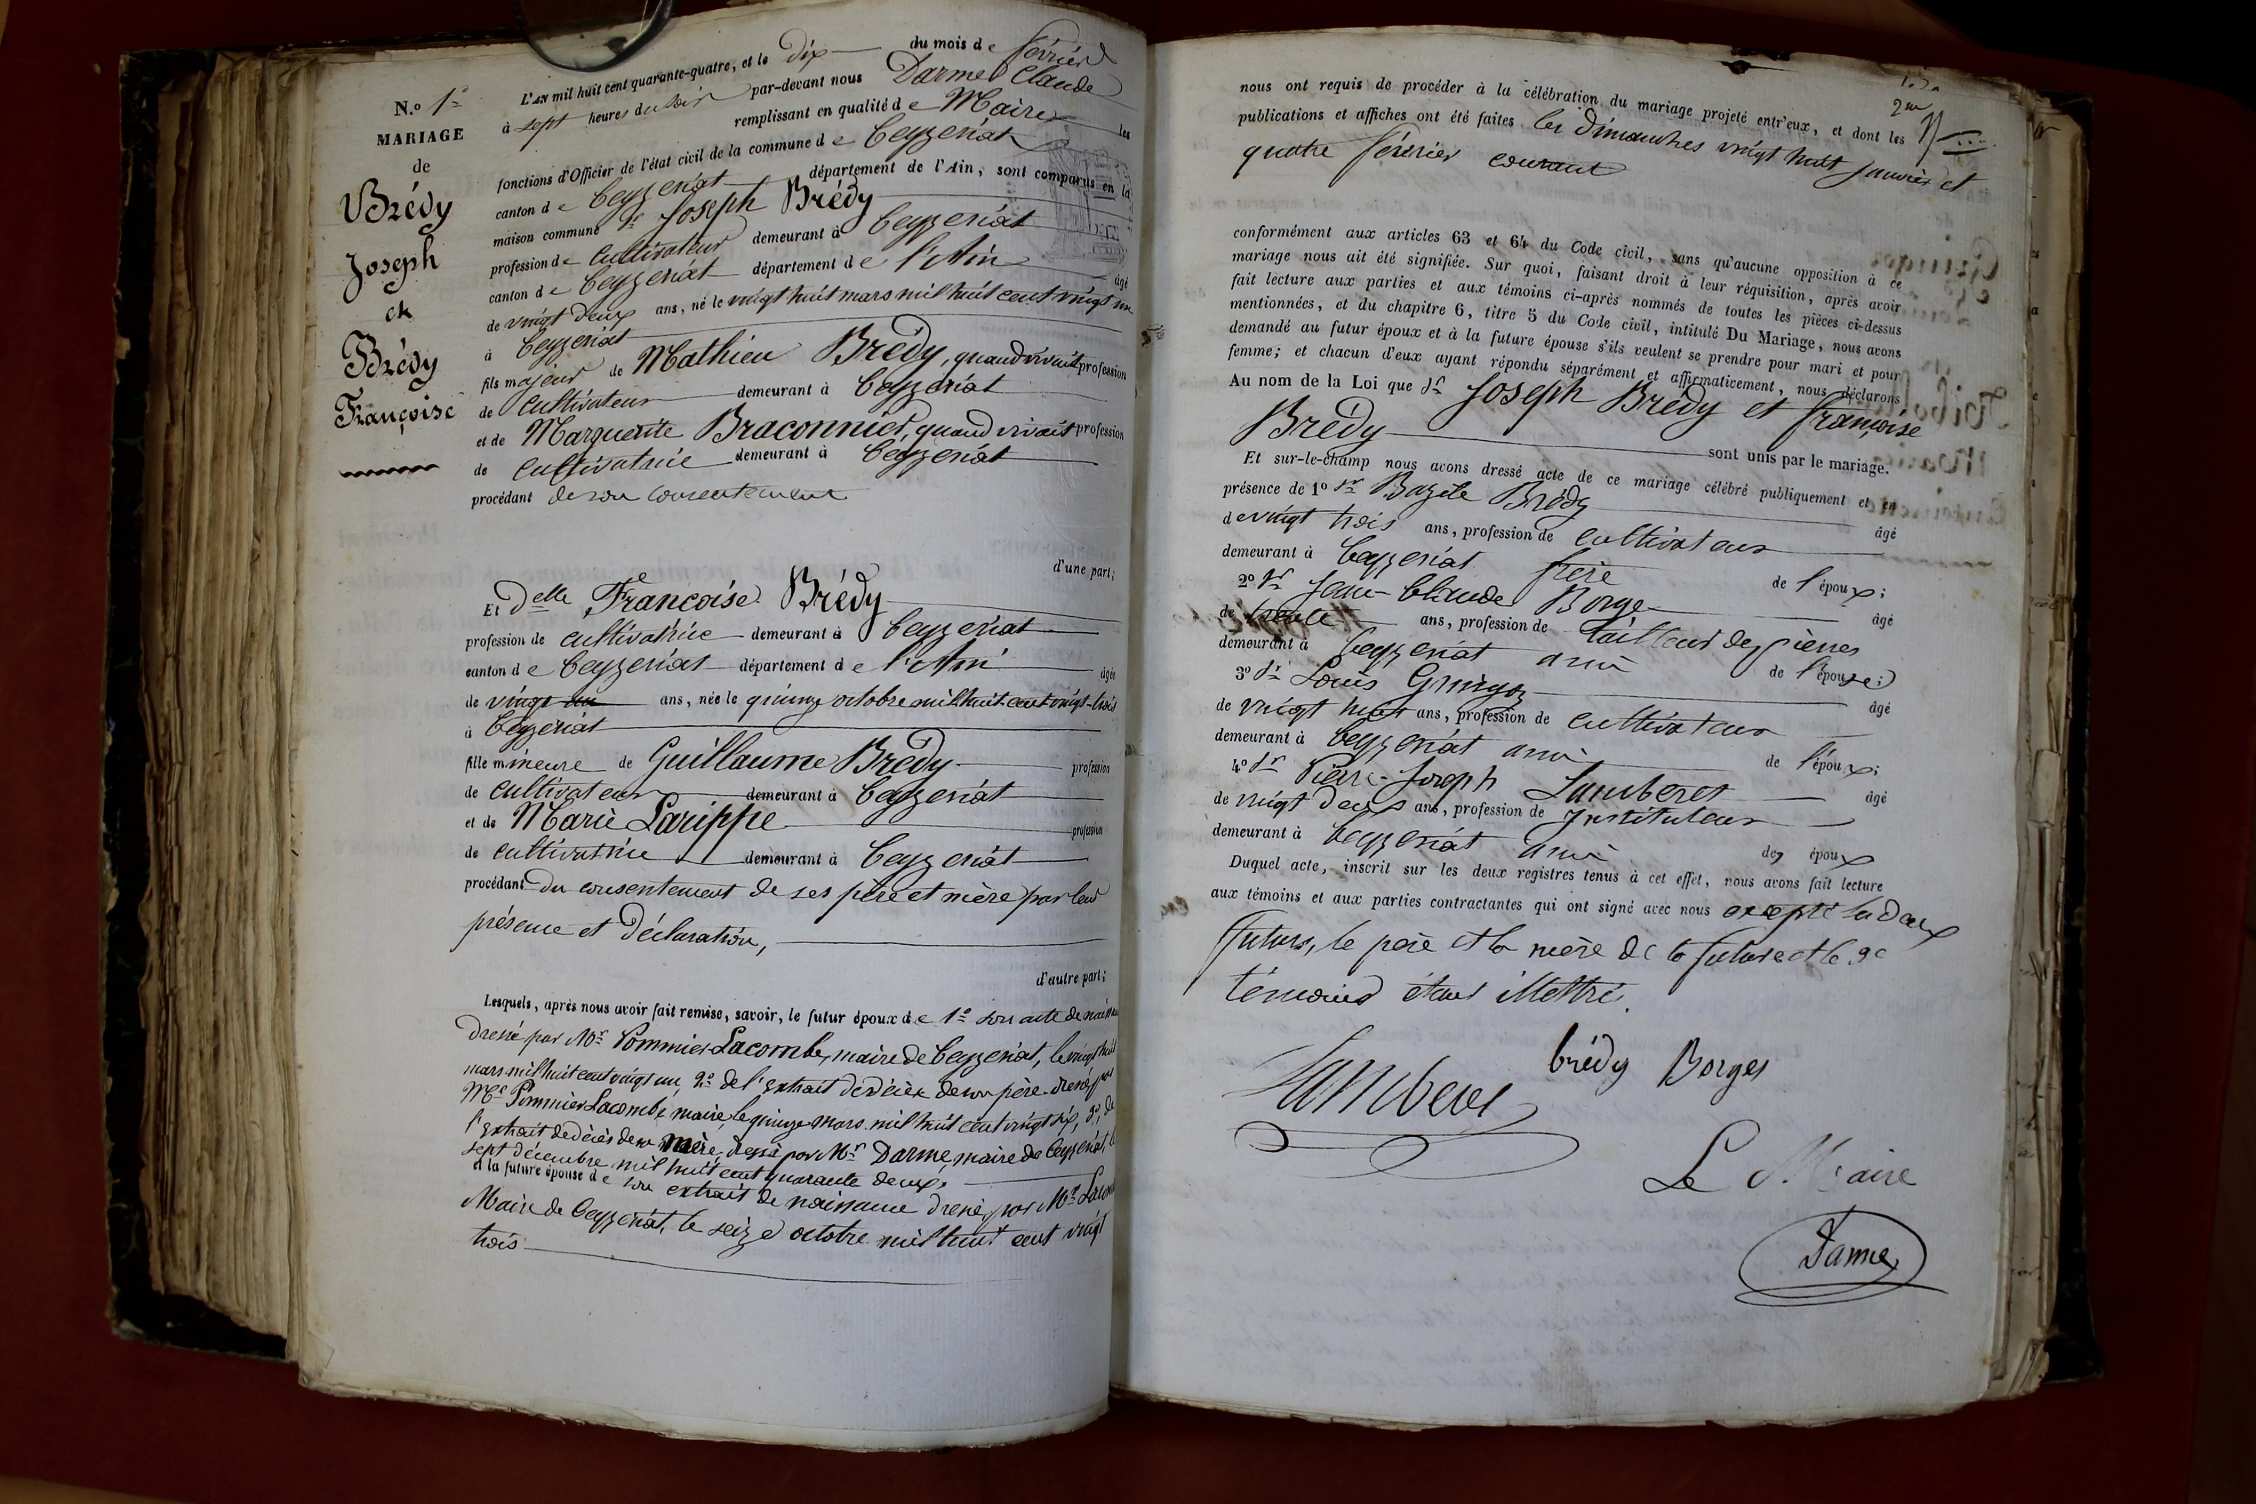 N.o 1o
MARIAGE
de
Brédy
Joseph
et
Brédy
Françoise
L'AN mil huit cent quarante-quatre, et le dix du mois de février
à sept heures du soir par-devant nous Darme Claude
remplissant en qualité de Maire les
fonctions d'Officier de l'état civil de la commune de Ceyzeriat
canton de Ceyzeriat département de l'Ain, sont comparus en la
maison commune Sr Joseph Brédy
profession de cultivateur demeurant à Ceyzeriat
canton de Ceyzeriat département de l'Ain âgé
de vingt deux ans, né le vingt huit mars mil huit cent vingt un
à Ceyzeriat
fils majeur de Mathieu Brédy, quand vivait profession
de cultivateur demeurant à Ceyzeriat
et de Marguerite Braconnier, quand vivait profession
de cultivatrice demeurant à Ceyzeriat
procédant de son consentement
d'une part;
Et Delle Françoise Brédy
profession de cultivatrice demeurant à Ceyzeriat
canton de Ceyzeriat département de l'Ain âgée
de vingt ans, née le quinze octobre mil huit cent vingt-trois
à Ceyzeriat
fille mineure de Guillaume Brédy profession
de cultivateur demeurant à Ceyzeriat
et de Marie Larippe profession
de cultivatrice demeurant à Ceyzeriat
procédant du consentement de ses père et mère par leur
présence et déclaration,
d'autre part;
Lesquels, après nous avoir fait remise, savoir, le futur époux de 1o son acte de
dressé par Mr Pommier Lacombe, maire de Ceyzeriat, le vingt huit
mars mil huit cent vingt un, 2o de l'extrait de décès de son père dressé par
Mr Pommier Lacombe, maire, le quinze mars mil huit cent vingt six, 3o, de
l'extrait de décès de sa mère, dressé par Mr Darme, maire de Ceyzeriat, le
sept décembre mil huit cent quarante deux.
et la future épouse de son extrait de naissance dressé par Mr
Maire de Ceyzeriat, le seize octobre mil huit cent vingt
trois
nous ont requis de procéder à la célébration du mariage projeté entr'eux, et dont les
publications et affiches ont été faites les dimanches vingt huit janvier et
quatre février courant
conformément aux articles 63 et 64 du Code civil, sans qu'aucune opposition à ce
mariage nous ait été signifiée. Sur quoi, faisant droit à leur réquisition, après avoir
fait lecture aux parties et aux témoins ci-après nommés de toutes les pièces ci-dessus
mentionnées, et du chapitre 6, titre 5 du Code civil, intitulé Du Mariage, nous avons
demandé au futur époux et à la future épouse s'ils veulent se prendre pour mari et pour
femme; et chacun d'eux ayant répondu séparément et affirmativement, nous déclarons
Au nom de la Loi que Sr Joseph Brédy et Françoise
Brédy sont unis par le mariage.
Et sur-le-champ nous avons dressé acte de ce mariage célébré publiquement et en
présence de 1o Sr Bazile Brédy âgé
de vingt trois ans, profession de cultivateur
demeurant à Ceyzeriat frère de l'époux;
2o Sr Jean-Claude Borge âgé
de trente ans, profession de tailleur de pierres
demeurant à Ceyzeriat ami de l'épouse;
3o Sr Louis Gringoz âgé
de vingt huit ans, profession de cultivateur
demeurant à Ceyzeriat ami de l'époux;
4o Sr Pierre-Joseph Lamberet âgé
de vingt deux ans, profession de Instituteur
demeurant à Ceyzeriat ami des époux
Duquel acte, inscrit sur les deux registres tenus à cet effet, nous avons fait lecture
aux témoins et aux parties contractantes qui ont signé avec nous excepté les deux
futurs, le père et la mère de la future et le 3e
témoins étant illettré.
brédy Borges
Lamberet
Le Maire
Darme